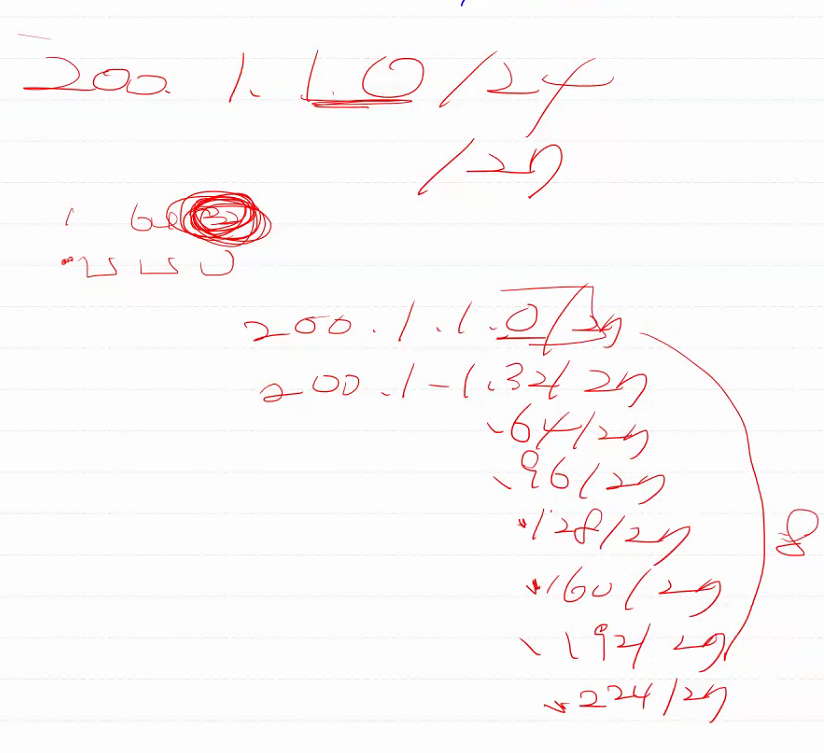 200. 1. 1.0 /24
/27
1 64 32
200.1.1.0/27
200.1-1.32/27
.64/27
.96/27
.128/27
.160/27
.192/27
.224/27
8